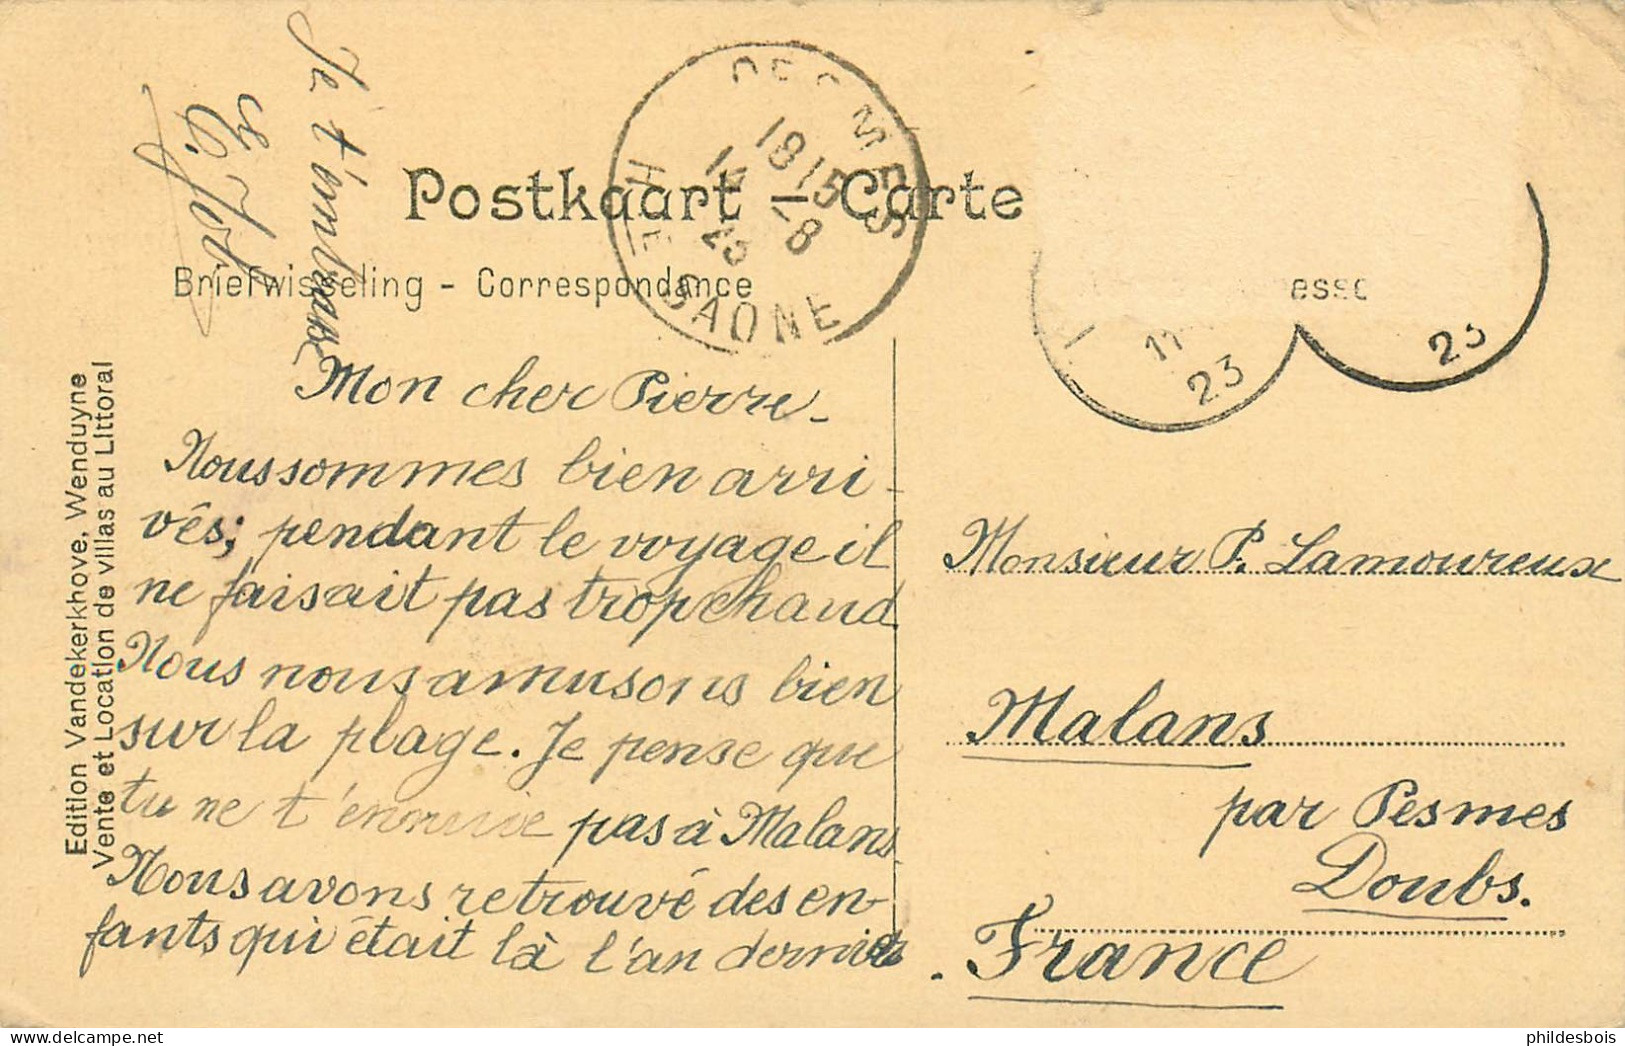 Postkaart - Carte
Briefwisseling - Correspondance
PESMES
18 15
14 - 8
23
HTE SAONE
esse
11
23
23
Edition Vandekerkhove, Wenduyne
Vente et Location de villas au Littoral
Mon cher Pierre -
Nous sommes bien arri-
vés; pendant le voyage il
ne faisait pas trop chaud.
Nous nous amusons bien
sur la plage. Je pense que
tu ne t'ennuie pas à Malans.
Nous avons retrouvé des en-
fants qui était là l'an dernier
Je t'embrasse
Monsieur P. Lamoureux
Malans
par Pesmes
Doubs.
France
delcampe.net
phildesbois